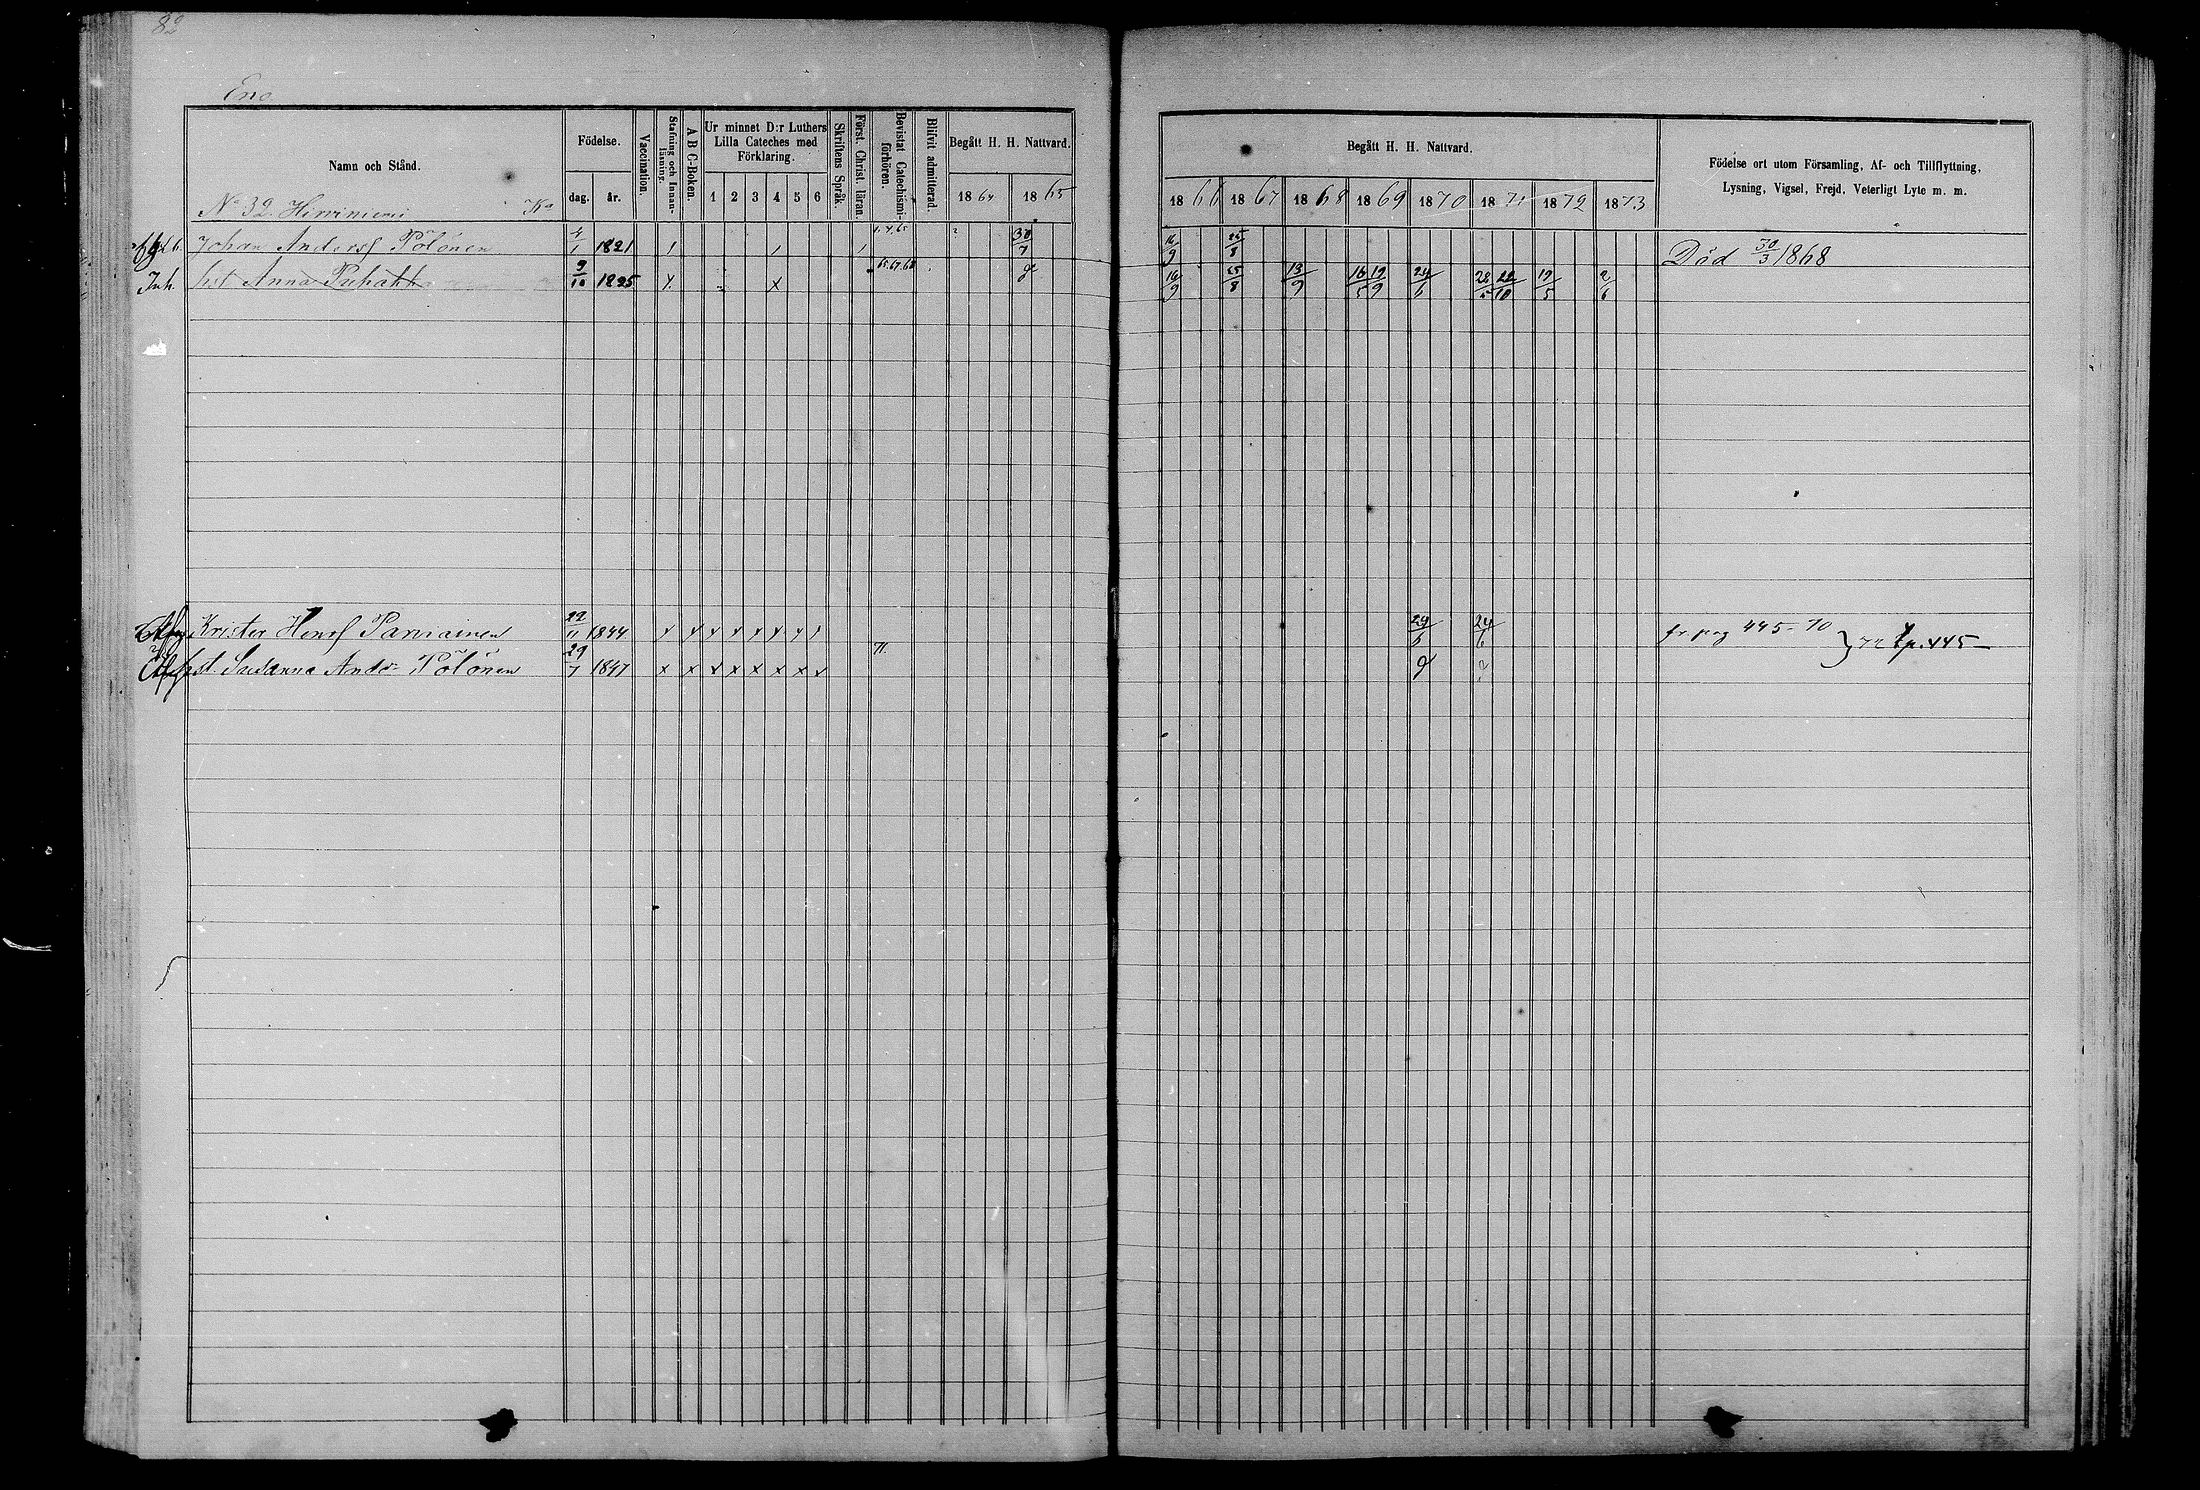 82
Eno
Namn och Stånd.
Födelse.
dag.
år.
Vaccination.
Stafning och Innan-läsning.
A B C-Boken.
Ur minnet D:r Luthers
Lilla Cateches med
Förklaring.
1 2 3 4 5 6
Skriftens Språk
Först. Christ. läran.
Bevistat Catechismi-förhören.
Blifvit admitterad.
Begått H. H. Nattvard.
1864 1865
N:o 32. Hirviniemi
Johan Andersf Pölönen 4/1 1821 30/7
Inh. hst Anna Puhakka 9/10 1825 65.67.68
Krister Henrf Parviainen 22/11 1844
hst Susanna Andr Pölönen 29/7 1847 71.
Begått H. H. Nattvard.
1866 1867 1868 1869 1870 1871 1872 1873
Födelse ort utom Församling, Af- och Tillflyttning,
Lysning, Vigsel, Frejd, Veterligt Lyte m. m.
16/9 25/8 Död 30/3 1868
16/9 25/8 13/9 16/5 19/9 24/6 28/5 22/10 19/5 2/6
29/6 24/6 fr pag 445-70
72 tp. 445